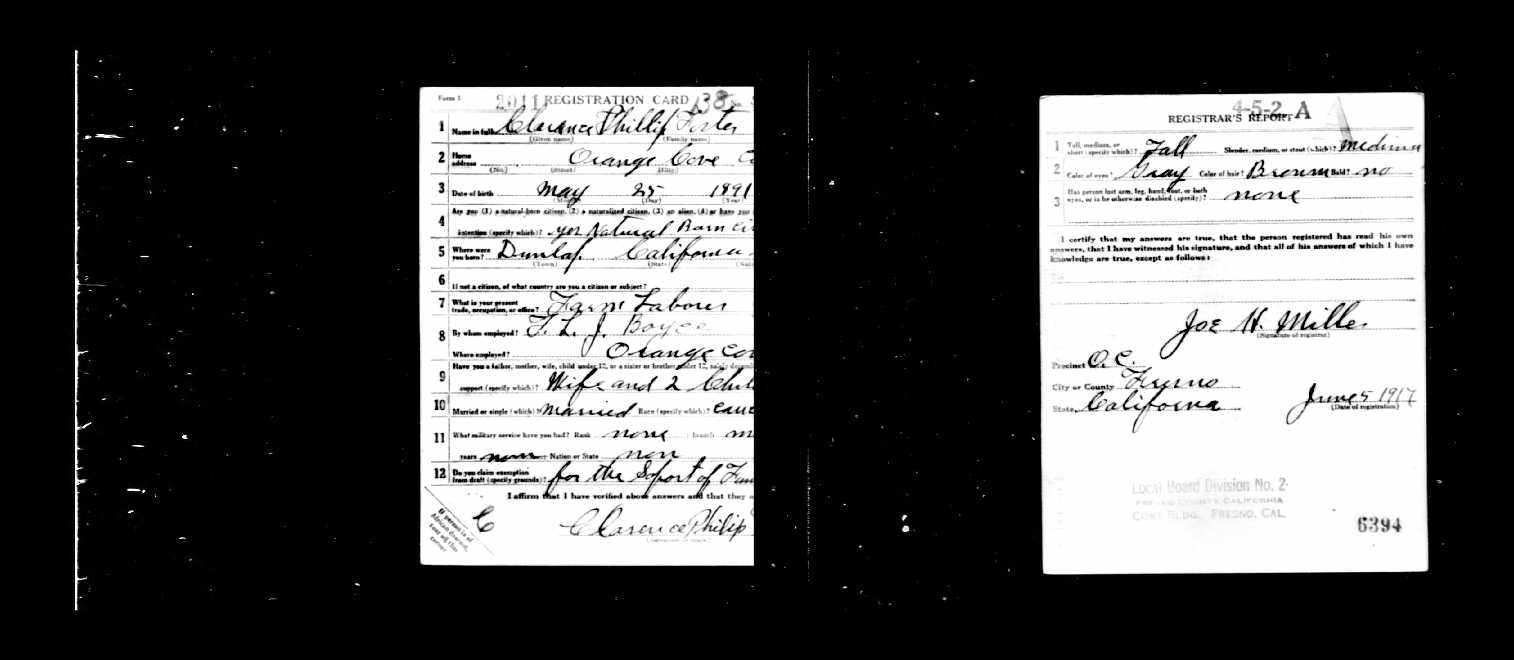 Form 1 2011 REGISTRATION CARD 138
1 Name in full Clarence Phillip Foster
(Given name) (Family name)
2 Home address Orange Cove
(No.) (Street) (City)
3 Date of birth May 25 1891
(Month) (Day) (Year)
4 Are you (1) a natural-born citizen, (2) a naturalized citizen, (3) an alien, (4) or have you
intention (specify which)? yes Natural Born
5 Where were you born? Dunlap California
(Town) (State)
6 If not a citizen, of what country are you a citizen or subject?
7 What is your present trade, occupation, or office? Farm Laborer
8 By whom employed? F. L. J. Boyce
Where employed? Orange Cov
9 Have you a father, mother, wife, child under 12, or a sister or brother under 12, solely
support (specify which)? Wife and 2 Chil
10 Married or single (which)? Married Race (specify which)? Cauc
11 What military service have you had? Rank none branch
years none Nation or State non
12 Do you claim exemption from draft (specify grounds)? for the Soport of Fam
I affirm that I have verified above answers and that they
If person is of African descent, tear off this corner
C
Clarence Philip
4-5-2. A
REGISTRAR'S REPORT
1 Tall, medium, or short (specify which)? Tall Slender, medium, or stout (which)? Medium
2 Color of eyes? Gray Color of hair? Brown Bald? no
3 Has person lost arm, leg, hand, foot, or both eyes, or is he otherwise disabled (specify)? none
I certify that my answers are true, that the person registered has read his own
answers, that I have witnessed his signature, and that all of his answers of which I have
knowledge are true, except as follows:
Joe H. Miller
(Signature of registrar)
Precinct O.C.
City or County Fresno
State California June 5 1917
(Date of registration)
Local Board Division No. 2
FRESNO COUNTY CALIFORNIA
CORY BLDG., FRESNO, CAL.
6394